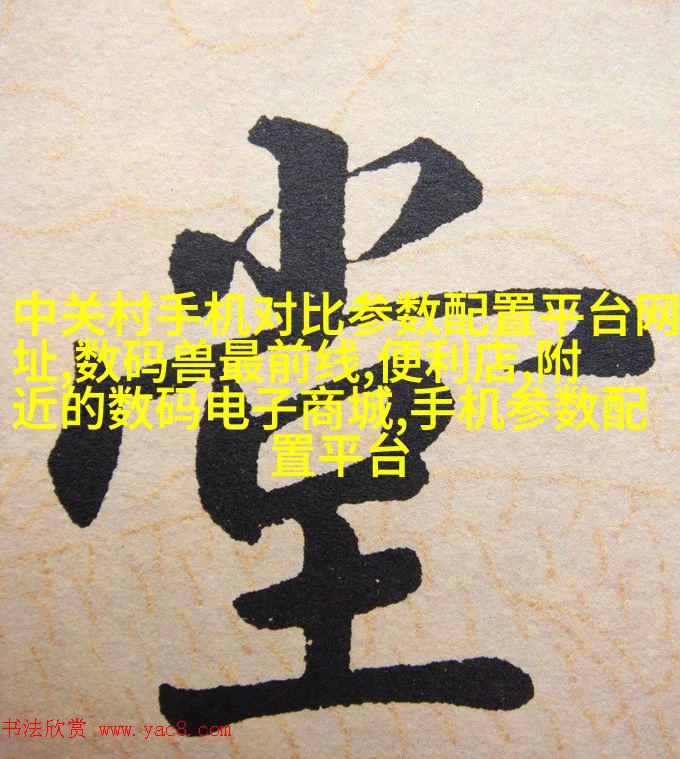 堂
中关村手机对比参数配置平台网
址,数码兽最前线,便利店,附
近的数码电子商城,手机参数配
置平台
书法欣赏 www.yac8.com